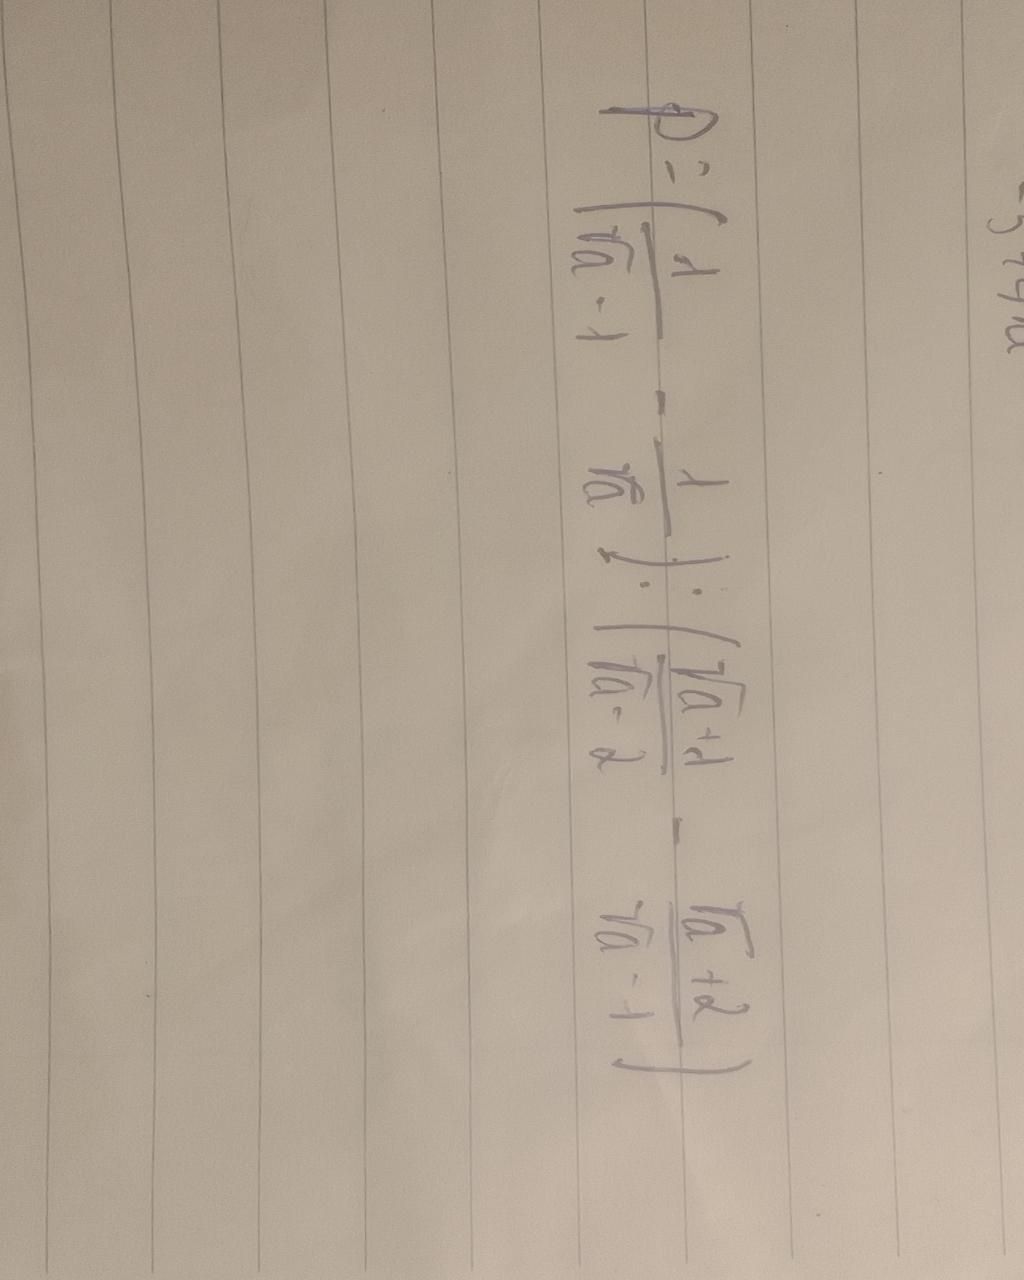 P = ( \frac{1}{\sqrt{a} - 1} - \frac{1}{\sqrt{a}} ) : ( \frac{\sqrt{a} + 1}{\sqrt{a} - 2} - \frac{\sqrt{a} + 2}{\sqrt{a} - 1} )